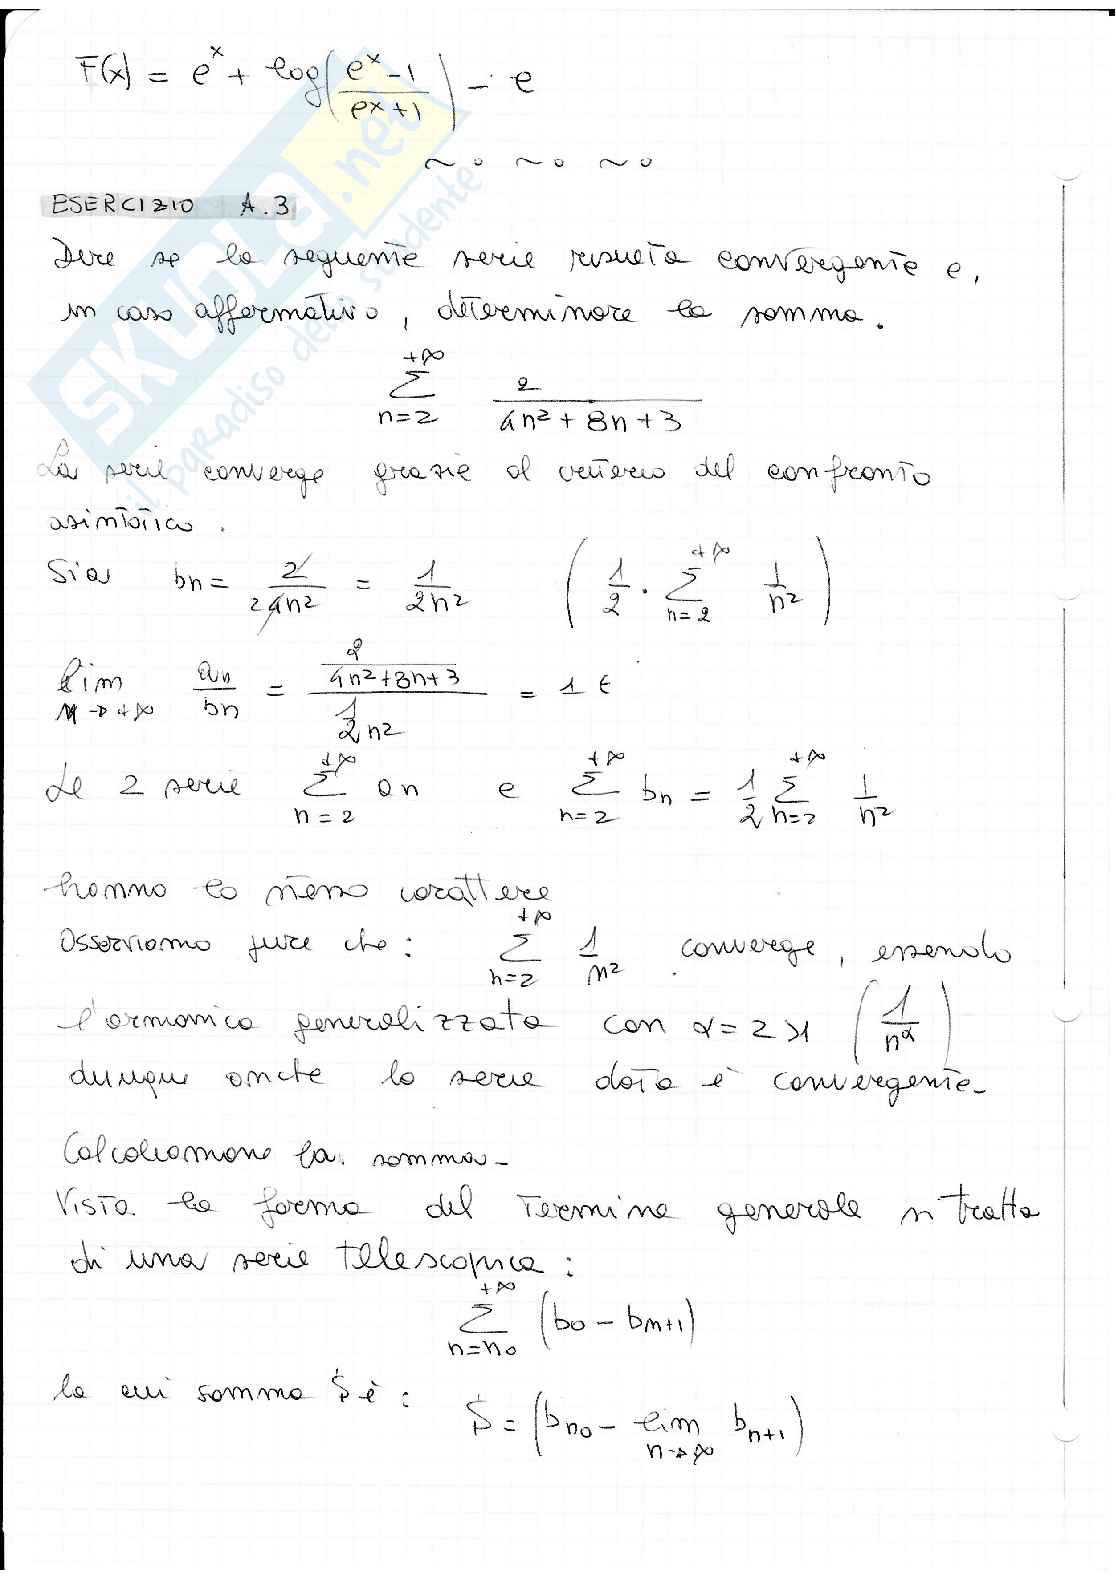 F(x) = e^x + log((e^x - 1)/(e^x + 1)) - e
~ o ~ o ~ o
ESERCIZIO A.3
Dire se la seguente serie risulta convergente e,
in caso affermativo, determinare la somma.
\sum_{n=2}^{+∞} 2/(4n² + 8n + 3)
La serie converge grazie al criterio del confronto
asintotico.
Sia bn = 2/(4n²) = 1/(2n²) (1/2 · \sum_{n=2}^{+∞} 1/n²)
lim_{n→+∞} an/bn = (2/(4n²+8n+3))/(1/2n²) = 1 ∈
Le 2 serie \sum_{n=2}^{+∞} an e \sum_{n=2}^{+∞} bn = 1/2 \sum_{n=2}^{+∞} 1/n²
hanno lo stesso carattere
Osserviamo pure che: \sum_{n=2}^{+∞} 1/n² converge, essendo
l'armonica generalizzata con α = 2 > 1 (1/n^α)
dunque anche la serie data è convergente-
Calcoliamone la somma-
Vista la forma del termine generale si tratta
di una serie telescopica:
\sum_{n=n0}^{+∞} (b0 - bn+1)
la cui somma S è:
S = (bn0 - lim_{n→∞} bn+1)
SKUOLA.net
il paradiso dello studente